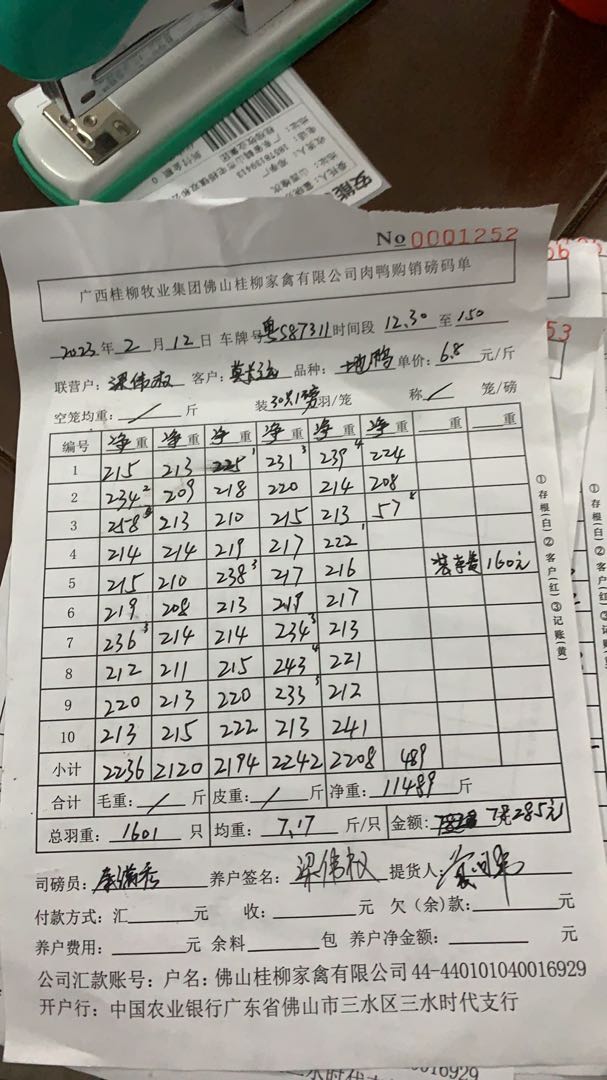 No 0001252
广西桂柳牧业集团佛山桂柳家禽有限公司肉鸭购销磅码单
2023年2月12日 车牌号 粤S87311 时间段 12.30 至 1.50
联营户：梁伟权 客户： 品种：土鸭 单价：6.8 元/斤
空笼均重：/ 斤 装30只1磅羽/笼 称/笼/磅
编号 净重 净重 净重 净重 净重 净重 重 重
1 215 213 225¹ 231³ 239⁴ 224
2 234² 209 218 220 214 208
3 258⁵ 213 210 215 213 57⁸
4 214 214 219 217 222¹
5 215 210 238³ 217 216 装车费 160元
6 219 208 213 219 217
7 236³ 214 214 234³ 213
8 212 211 215 243⁴ 221
9 220 213 220 233³ 212
10 213 215 222 213 241
小计 2236 2120 2194 2242 2208 489
合计 毛重：/ 斤 皮重：/ 斤 净重：11489 斤
总羽重：1601 只 均重：7.17 斤/只 金额： 285元
司磅员： 养户签名：梁伟权 提货人：
付款方式：汇 元 收： 元 欠（余）款： 元
养户费用： 元 余料 包 养户净金额： 元
公司汇款账号：户名：佛山桂柳家禽有限公司 44-440101040016929
开户行：中国农业银行广东省佛山市三水区三水时代支行
①存根(白)②客户(红)③记账(黄)
安能
53